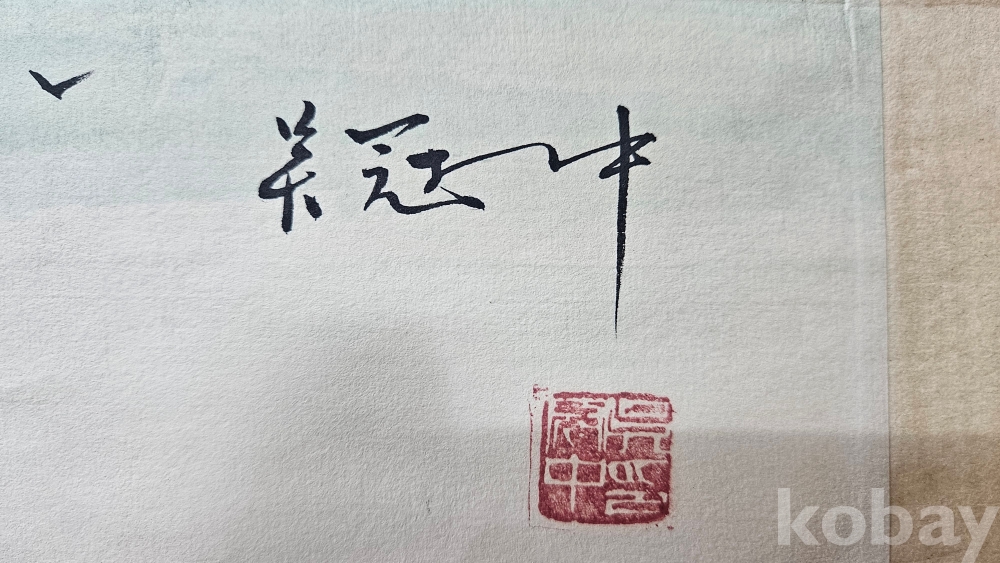 吴冠中
吳印
冠中
kobay